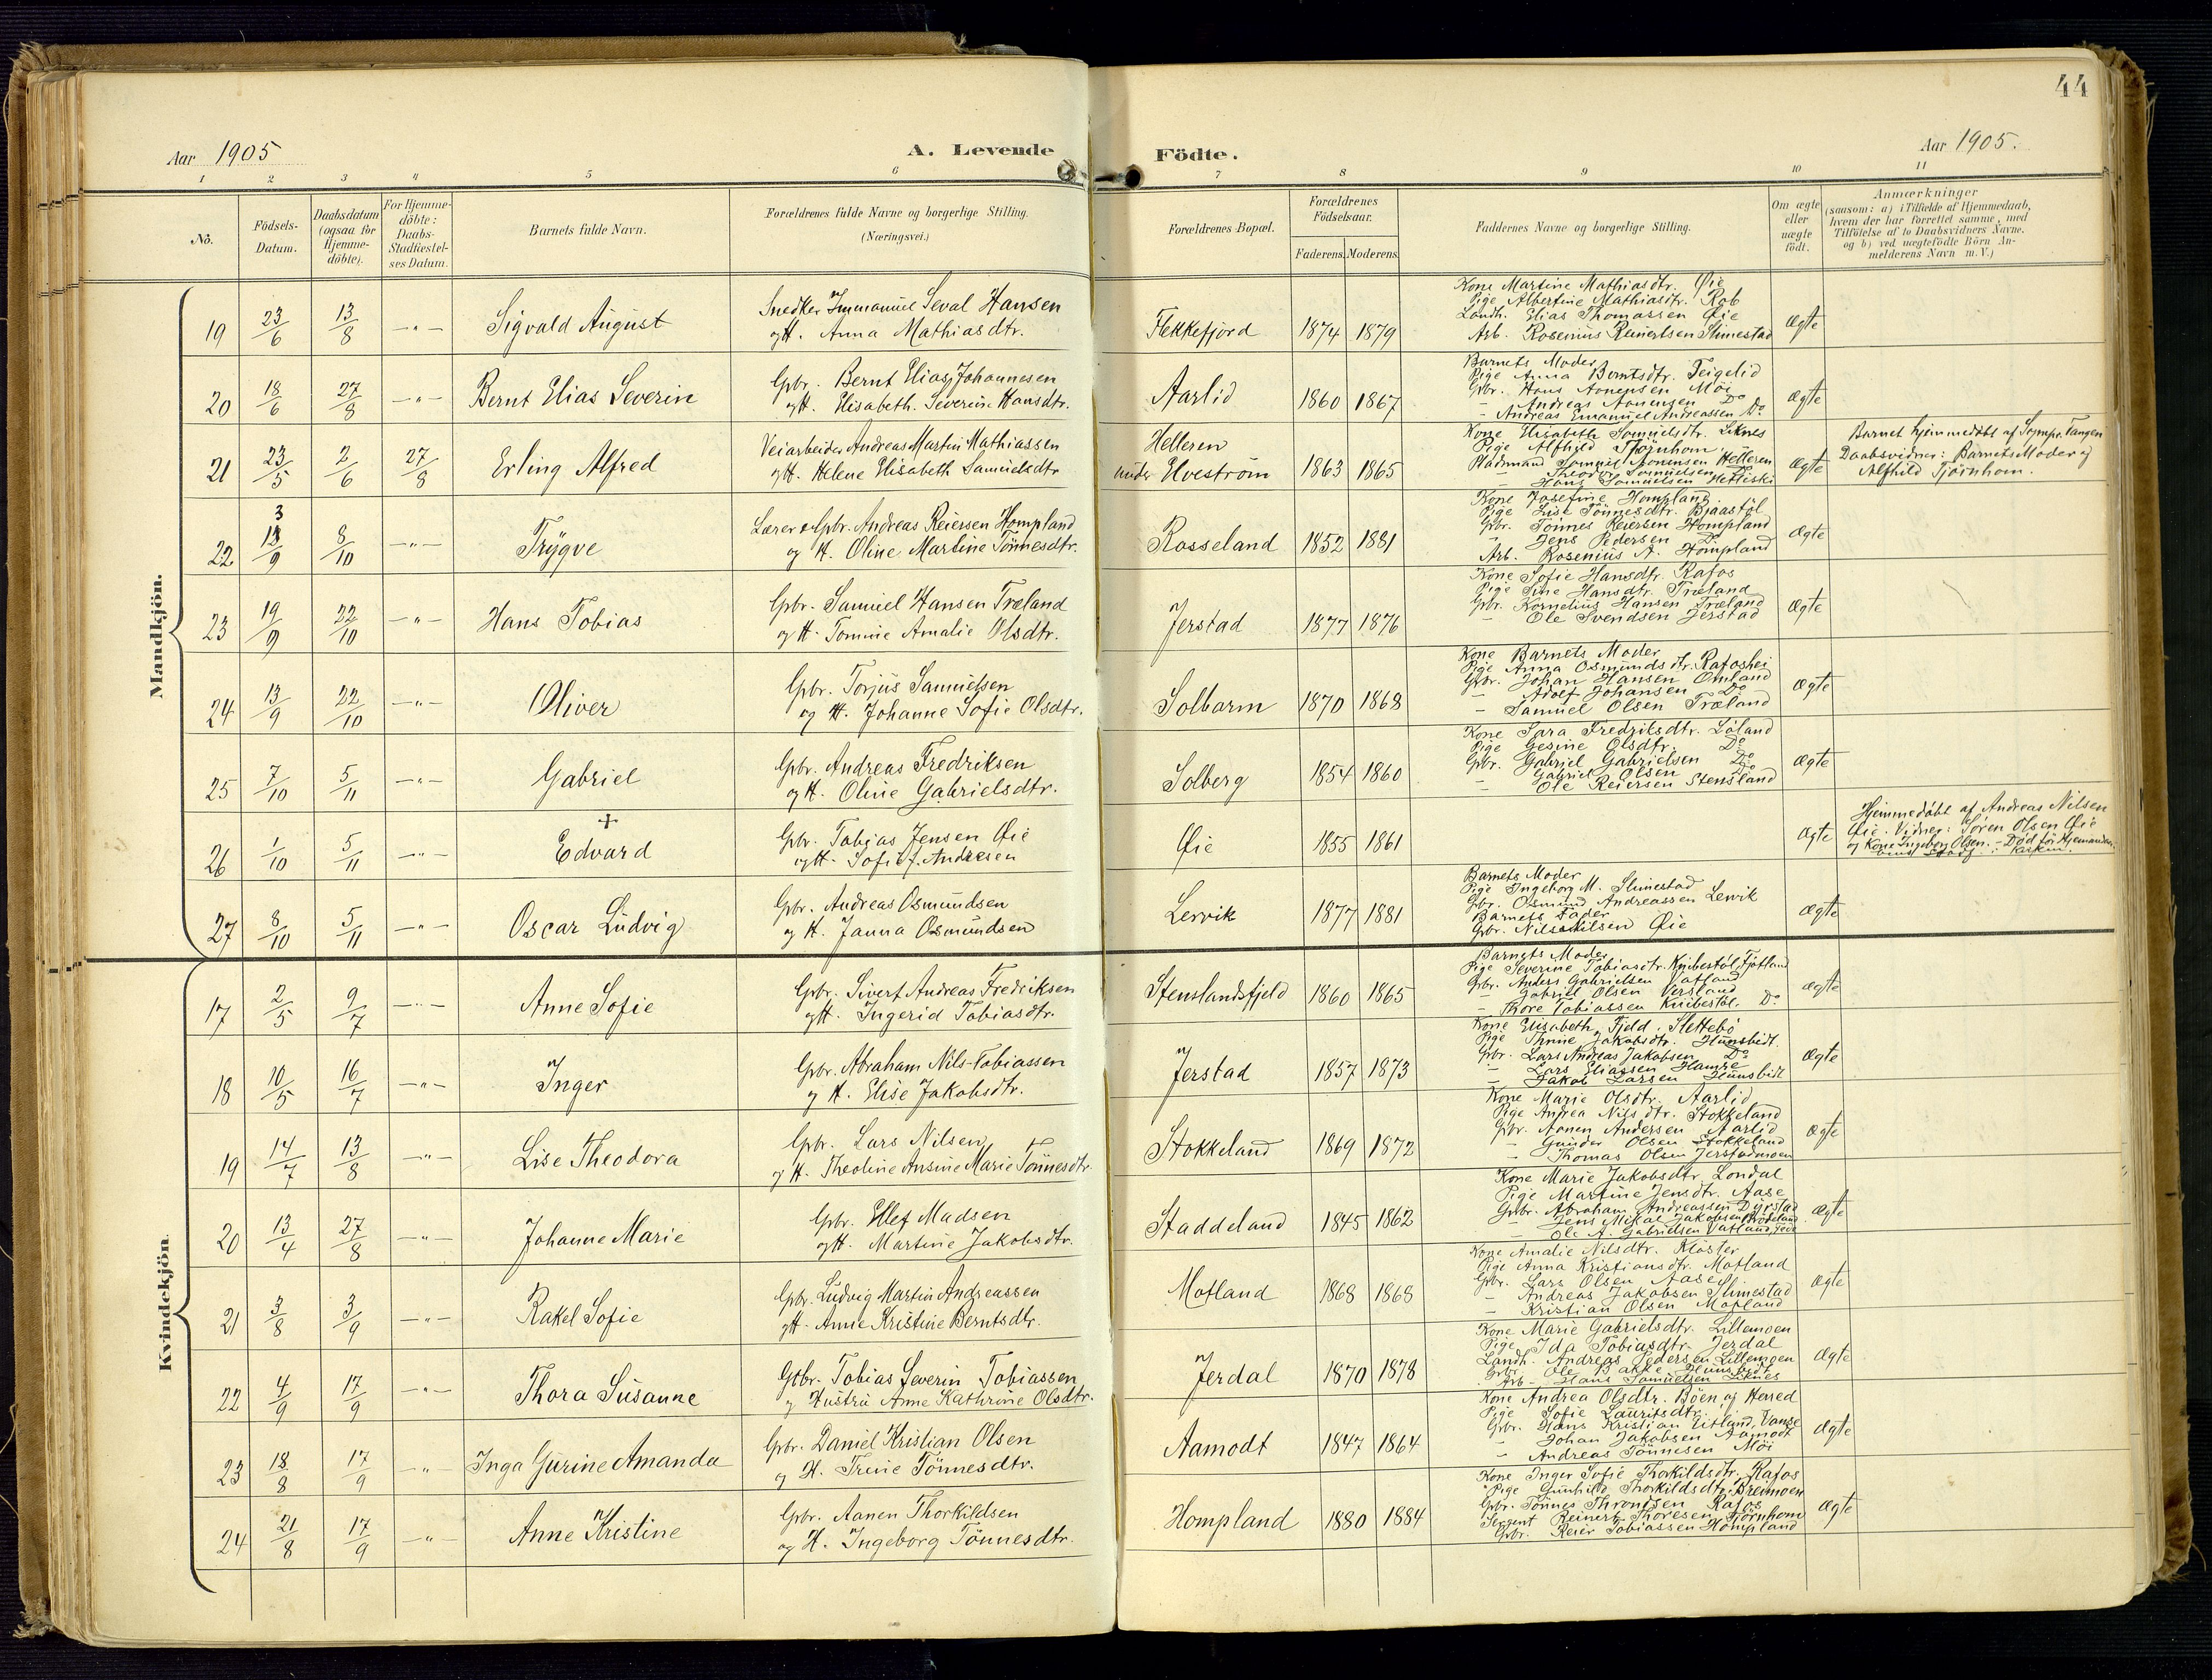 44
Aar 1905
A. Levende
Födte.
Aar 1905.
1 2 3 4 5 6 7 8 9 10 11
Nô.
Födsels-
Datum.
Daabsdatum
(ogsaa for
Hjemme-
döbte).
For Hjemme-
döbte:
Daabs-
Stadfæstel-
ses Datum.
Barnets fulde Navn.
Forældrenes fulde Navne og borgerlige Stilling.
(Næringsvei.)
Forældrenes Bopæl.
Forældrenes
Födselsaar.
Faderens. Moderens.
Faddernes Navne og borgerlige Stilling.
Om ægte
eller
uægte
födt.
Anmærkninger
(saasom: a) i Tilfælde af Hjemmedaab,
hvem der har forrettet samme, med
Tilföielse af to Daabsvidners Navne.
og b) ved uægtefödte Börn An-
melderens Navn m. V.)
Mandkjön.
19 23/6 13/8 -"- Sigvald August
Snedker Immanuel Seval Hansen
og H. Anna Mathiasdtr.
Flekkefjord 1874 1879
Kone Martine Mathiasdtr. Øie
Pige Albertine Mathiasdtr. Rob
Landh. Elias Thomassen Øie
Arb. Rosenius Reinertsen Slimestad
Ægte
20 18/6 27/8 -"- Bernt Elias Severin
Gbr. Bernt Elias Johannesen
og H. Elisabeth Severine Hansdtr.
Aarlid 1860 1867
Barnets Moder
Pige Anna Berntsdtr. Feigelid
Gbr. Hans Aanensen Möi
- Andreas Aanensen Do
- Andreas Emanuel Andreassen Do
Ægte
21 23/5 2/6 27/8 Erling Alfred
Veiarbeider Andreas Martin Mathiassen
og H. Helene Elisabeth Samuelsdtr
Helleren
under Elveström 1863 1865
Kone Elisabeth Samuelsdtr. Liknes
Pige Alfhild Tjörnhom.
Pladsmand Samuel Helleren
- Theodor Samuelsen Do
- Hans Samuelsen
Ægte
Barnet hjemmedöbt af Sognepr. Tangen
Daabsvidner: Barnets Moder og
Alfhild Tjörnhom.
22 3 13/9 8/10 -"- Trygve
Lærer & Gbr. Andreas Reiersen Hompland
og H. Oline Martine Tönnesdtr.
Rosseland 1852 1881
Kone Josefine Hompland
Pige Lise Tönnesdtr. Bjaastöl
Gbr. Tönnes Reiersen Hompland
" Jens Pedersen Do
Arb. Rosenius A. Hompland
Ægte
23 19/9 22/10 -"- Hans Tobias
Gbr. Samuel Hansen Træland
og H. Tomine Amalie Olsdtr.
Jerstad 1877 1876
Kone Sofie Hansdtr. Rafos
Pige Sine Hansdtr. Træland
Gbr. Kornelius Hansen Træland
- Ole Svendsen Jerstad
Ægte
24 13/9 22/10 -"- Oliver
Gbr. Torjus Samuelsen
og H. Johanne Sofie Olsdtr.
Solbarm 1870 1868
Kone Barnets Moder
Pige Anna Osmundsdtr. Rafoshei
Gbr. Johan Hansen Omland
- Adolf Johansen Do
- Samuel Olsen Træland
Ægte
25 7/10 5/11 -"- Gabriel
Gbr. Andreas Fredriksen
og H. Oline Gabrielsdtr.
Solberg 1854 1860
Kone Sara Fredriksdtr. Löland
Pige Gesine Olsdtr. Do
Gbr. Gabriel Gabrielsen Do
- Gabriel Olsen Do
- Ole Reiersen Stensland
Ægte
26 1/10 5/11 -"- + Edvard
Gbr. Tobias Jensen Øie
og H. Sofie f. Andresen
Øie 1855 1861
Ægte
Hjemmedöbt af Andreas Nilsen
Øie. Vidner: Sören Olsen Øie
og Kone Ingeborg Olsen. - Död för Hjemmedaa-
bens Stadf. i Kirken.
27 8/10 5/11 -"- Oscar Ludvig
Gbr. Andreas Osmundsen
og H. Janna Osmundsen
Lervik 1877 1881
Barnets Moder
Pige Ingeborg M. Slimestad
Gbr. Osmund Andreassen Lervik
Barnets Fader
Gbr. Nils Nilsen Øie
Ægte
Kvindekjön.
17 2/5 9/7 -"- Anne Sofie
Gbr. Sivert Andreas Fredriksen
og H. Ingerid Tobiasdtr.
Stenslandsfjeld 1860 1865
Barnets Moder
Pige Severine Tobiasdtr. Knibestöl, Fjotland
Gbr. Anders Gabrielsen Vatland
- Gabriel Olsen Versland
- Thore Tobiassen Knibestöl. Do
Ægte
18 10/5 16/7 -"- Inger
Gbr. Abraham Nils Tobiassen
og H. Elise Jakobsdtr.
Jerstad 1857 1873
Kone Elisabeth Fjeld. Slettebö
Pige Thrine Jakobsdtr. Hunsbidt
Gbr. Lars Andreas Jakobsen Do
- Lars Eliassen Hamre
- Jakob Larsen Hunsbidt
Ægte
19 14/7 13/8 -"- Lise Theodora
Gbr. Lars Nilsen
og H. Theoline Ansine Marie Tönnesdtr.
Stokkeland 1869 1872
Kone Marie Olsdtr. Aarlid
Pige Andrea Nilsdtr. Stokkeland
Gbr. Aanen Andersen Aarlid
- Gunder Olsen Stokkeland
- Thomas Olsen Jerstadmoen
Ægte
20 13/4 27/8 -"- Johanne Marie
Gbr. Ellef Madsen
og H. Martine Jakobsdtr.
Staddeland 1845 1862
Kone Marie Jakobsdtr. Londal
Pige Martine Jensdtr. Aase
Gbr. Abraham Andreassen Dyrstad
- Jens Mikal Jakobsen
- Ole A. Gabrielsen Vatland,
Ægte
21 3/8 3/9 -"- Rakel Sofie
Gbr. Ludvig Martin Andreassen
og H. Anne Kristine Berntsdtr.
Motland 1868 1868
Kone Amalie Nilsdtr. Kloster
Pige Anna Kristiansdtr. Motland
Gbr. Lars Olsen Aase
- Andreas Jakobsen Slimestad
- Kristian Olsen Motland
Ægte
22 4/9 17/9 -"- Thora Susanne
Gbr. Tobias Severin Tobiassen
og Hustru Anne Kathrine Olsdtr.
Jerdal 1870 1878
Kone Marie Gabrielsdtr. Lillemoen
Pige Ida Tobiasdtr. Jerdal
Landh. Andreas Pedersen Lillemoen
Gbr. Ole Bakke Hunsbidt
Arb - Hans Samuelsen Liknes
Ægte
23 18/8 17/9 -"- Inga Gurine Amanda
Gbr. Daniel Kristian Olsen
og H. Trine Tönnesdtr.
Aamodt 1847 1864
Kone Andrea Olsdtr. Böen, og Herred
Pige Sofie Lauritsdtr.
Gbr. Hans Kristian Eitland, Vanse
- Johan Jakobsen Aamodt
- Andreas Tönnesen Möi
Ægte
24 21/8 17/9 -"- Anne Kristine
Gbr. Aanen Thorkildsen
og H. Ingeborg Tönnesdtr.
Hompland 1880 1884
Kone Inger Sofie Thorkildsdtr. Rafos
Pige Gunhild Thorkildsdtr. Breimoen
Gbr. Tönnes Throndsen Rafos
Sergent Reinert Thoresen Tjörnhom
Gbr. Reier Tobiassen Hompland
Ægte